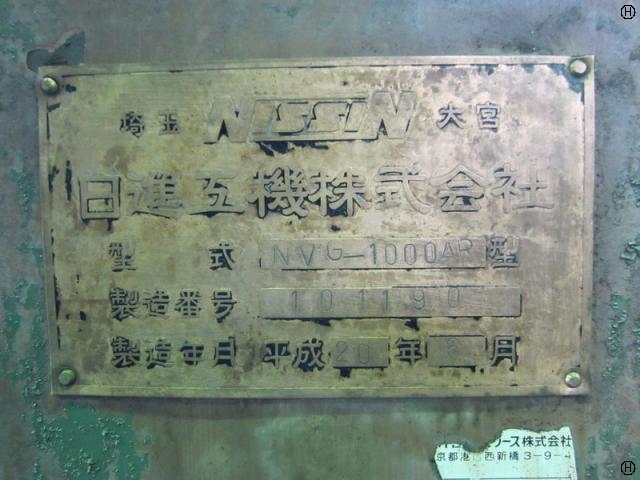 埼玉 NISSIN 大宮
日進互機株式会社
型 式 NVG-1000AR 型
製造番号 101190
製造年月 平成 20 年 月
リース株式会社
京都港 西新橋3-9-